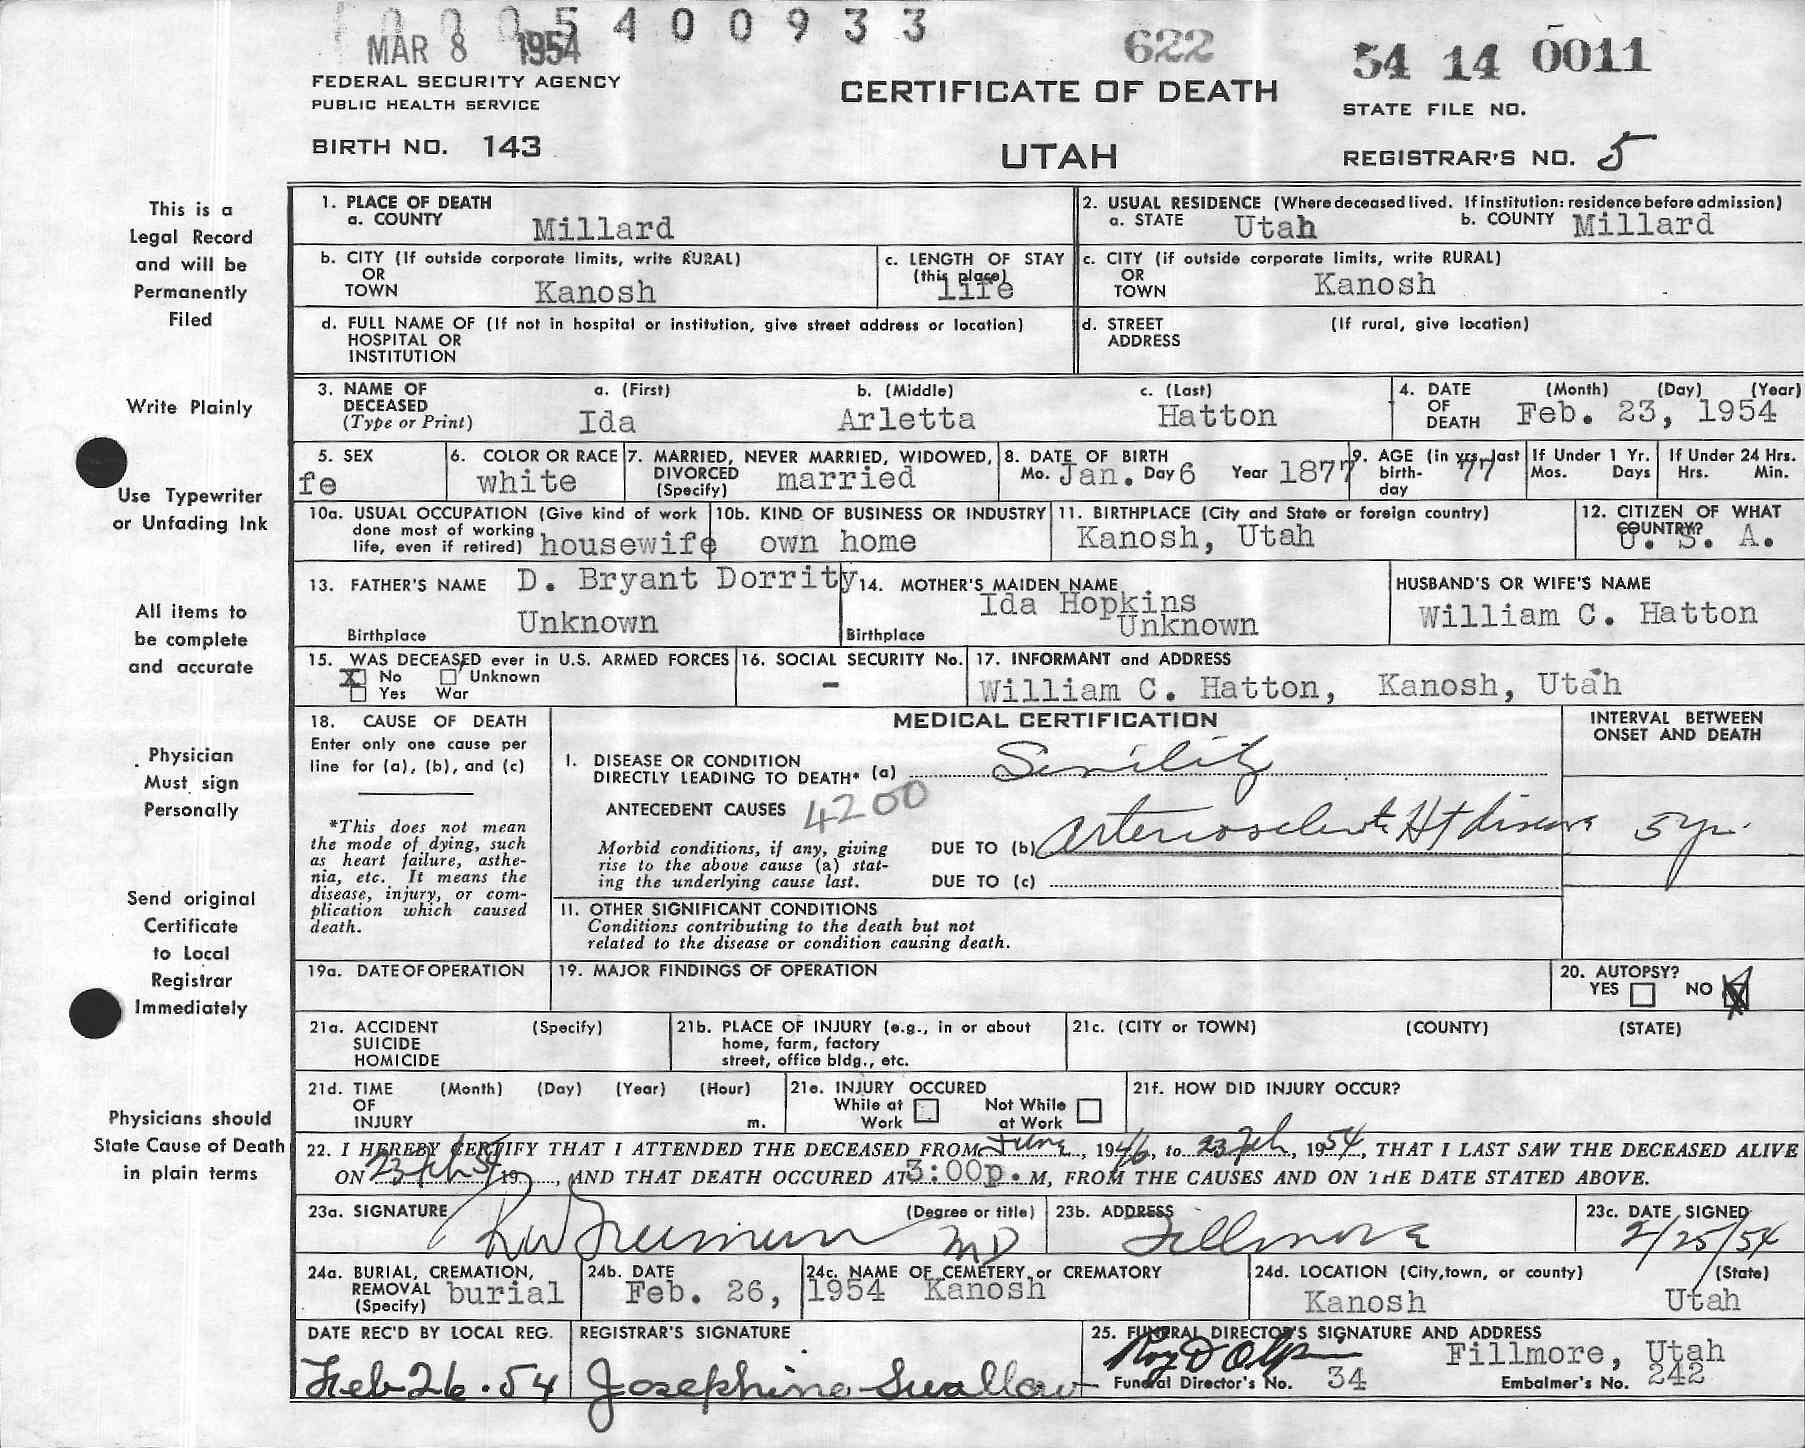 1 0 0 0 5 4 0 0 9 3 3
MAR 8 1954
622
54 14 0011
FEDERAL SECURITY AGENCY
PUBLIC HEALTH SERVICE
CERTIFICATE OF DEATH
STATE FILE NO.
BIRTH NO. 143
UTAH
REGISTRAR'S NO. 5
This is a
Legal Record
and will be
Permanently
Filed
Write Plainly
Use Typewriter
or Unfading Ink
All items to
be complete
and accurate
Physician
Must sign
Personally
Send original
Certificate
to Local
Registrar
Immediately
Physicians should
State Cause of Death
in plain terms
1. PLACE OF DEATH
a. COUNTY Millard
2. USUAL RESIDENCE (Where deceased lived. If institution: residence before admission)
a. STATE Utah b. COUNTY Millard
b. CITY (If outside corporate limits, write RURAL)
OR
TOWN Kanosh
c. LENGTH OF STAY
(this place)
life
c. CITY (if outside corporate limits, write RURAL)
OR
TOWN Kanosh
d. FULL NAME OF (If not in hospital or institution, give street address or location)
HOSPITAL OR
INSTITUTION
d. STREET (If rural, give location)
ADDRESS
3. NAME OF
DECEASED
(Type or Print)
a. (First) b. (Middle) c. (Last)
Ida Arletta Hatton
4. DATE (Month) (Day) (Year)
OF
DEATH Feb. 23, 1954
5. SEX
fe
6. COLOR OR RACE
white
7. MARRIED, NEVER MARRIED, WIDOWED,
DIVORCED
(Specify) married
8. DATE OF BIRTH
Mo. Jan. Day 6 Year 1877
9. AGE (in yrs. last
birth-
day 77
If Under 1 Yr.
Mos. Days
If Under 24 Hrs.
Hrs. Min.
10a. USUAL OCCUPATION (Give kind of work
done most of working
life, even if retired) housewife
10b. KIND OF BUSINESS OR INDUSTRY
own home
11. BIRTHPLACE (City and State or foreign country)
Kanosh, Utah
12. CITIZEN OF WHAT
COUNTRY?
U. S. A.
13. FATHER'S NAME D. Bryant Dorrity
Birthplace Unknown
14. MOTHER'S MAIDEN NAME
Ida Hopkins
Birthplace Unknown
HUSBAND'S OR WIFE'S NAME
William C. Hatton
15. WAS DECEASED ever in U.S. ARMED FORCES
X No Unknown
Yes War
16. SOCIAL SECURITY No.
-
17. INFORMANT and ADDRESS
William C. Hatton, Kanosh, Utah
18. CAUSE OF DEATH
Enter only one cause per
line for (a), (b), and (c)
*This does not mean
the mode of dying, such
as heart failure, asthe-
nia, etc. It means the
disease, injury, or com-
plication which caused
death.
MEDICAL CERTIFICATION
INTERVAL BETWEEN
ONSET AND DEATH
I. DISEASE OR CONDITION
DIRECTLY LEADING TO DEATH* (a) Senility
ANTECEDENT CAUSES 4200
Morbid conditions, if any, giving
rise to the above cause (a) stat-
ing the underlying cause last.
DUE TO (b) Arteriosclerotic Ht disease 5 yr.
DUE TO (c)
II. OTHER SIGNIFICANT CONDITIONS
Conditions contributing to the death but not
related to the disease or condition causing death.
19a. DATE OF OPERATION
19. MAJOR FINDINGS OF OPERATION
20. AUTOPSY?
YES NO X
21a. ACCIDENT (Specify)
SUICIDE
HOMICIDE
21b. PLACE OF INJURY (e.g., in or about
home, farm, factory
street, office bldg., etc.
21c. (CITY or TOWN) (COUNTY) (STATE)
21d. TIME (Month) (Day) (Year) (Hour)
OF
INJURY m.
21e. INJURY OCCURED
While at Work Not While at Work
21f. HOW DID INJURY OCCUR?
22. I HEREBY CERTIFY THAT I ATTENDED THE DECEASED FROM June, 1946, to 23 Feb, 1954, THAT I LAST SAW THE DECEASED ALIVE
ON 23 Feb 54 19, AND THAT DEATH OCCURED AT 3:00p. M, FROM THE CAUSES AND ON THE DATE STATED ABOVE.
23a. SIGNATURE (Degree or title)
MD
23b. ADDRESS
Fillmore
23c. DATE SIGNED
2/25/54
24a. BURIAL, CREMATION,
REMOVAL
(Specify) burial
24b. DATE
Feb. 26, 1954
24c. NAME OF CEMETERY or CREMATORY
Kanosh
24d. LOCATION (City, town, or county) (State)
Kanosh Utah
DATE REC'D BY LOCAL REG.
Feb 26. 54
REGISTRAR'S SIGNATURE
Josephine Swallow
25. FUNERAL DIRECTOR'S SIGNATURE AND ADDRESS
Fillmore, Utah
Funeral Director's No. 34 Embalmer's No. 242